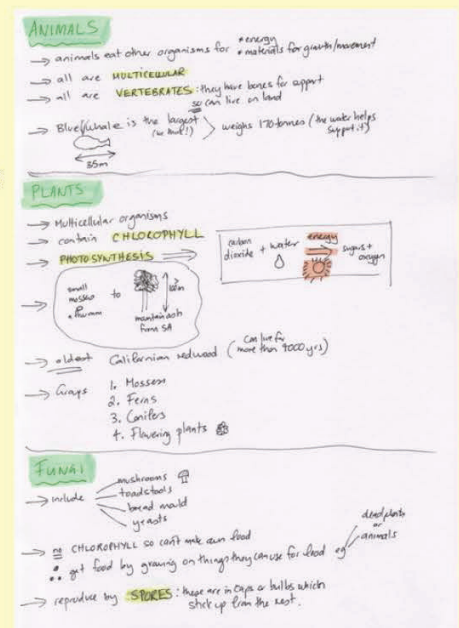 ANIMALS
→ animals eat other organisms for • energy
• materials for growth/movement
→ all are MULTICELLULAR
→ all are VERTEBRATES: they have bones for support
so can live on land
→ Blue Whale is the largest
(we think!)
weighs 170 tonnes (the water helps
support it)
35m
PLANTS
→ Multicellular organisms
→ contain CHLOROPHYLL
→ PHOTOSYNTHESIS
carbon
dioxide + water
energy
sugars +
oxygen
→ small
mosses
to
mountain ash
from SA
→ oldest Californian redwood (can live for
more than 4000 yrs)
→ Groups
1. Mosses
2. Ferns
3. Conifers
4. Flowering plants
FUNGI
→ include
mushrooms
toadstools
bread mould
yeasts
→ no CHLOROPHYLL so can't make own food
∴ get food by growing on things they can use for food eg
dead plants
or
animals
→ reproduce by SPORES: these are in caps or bulbs which
stick up from the rest.